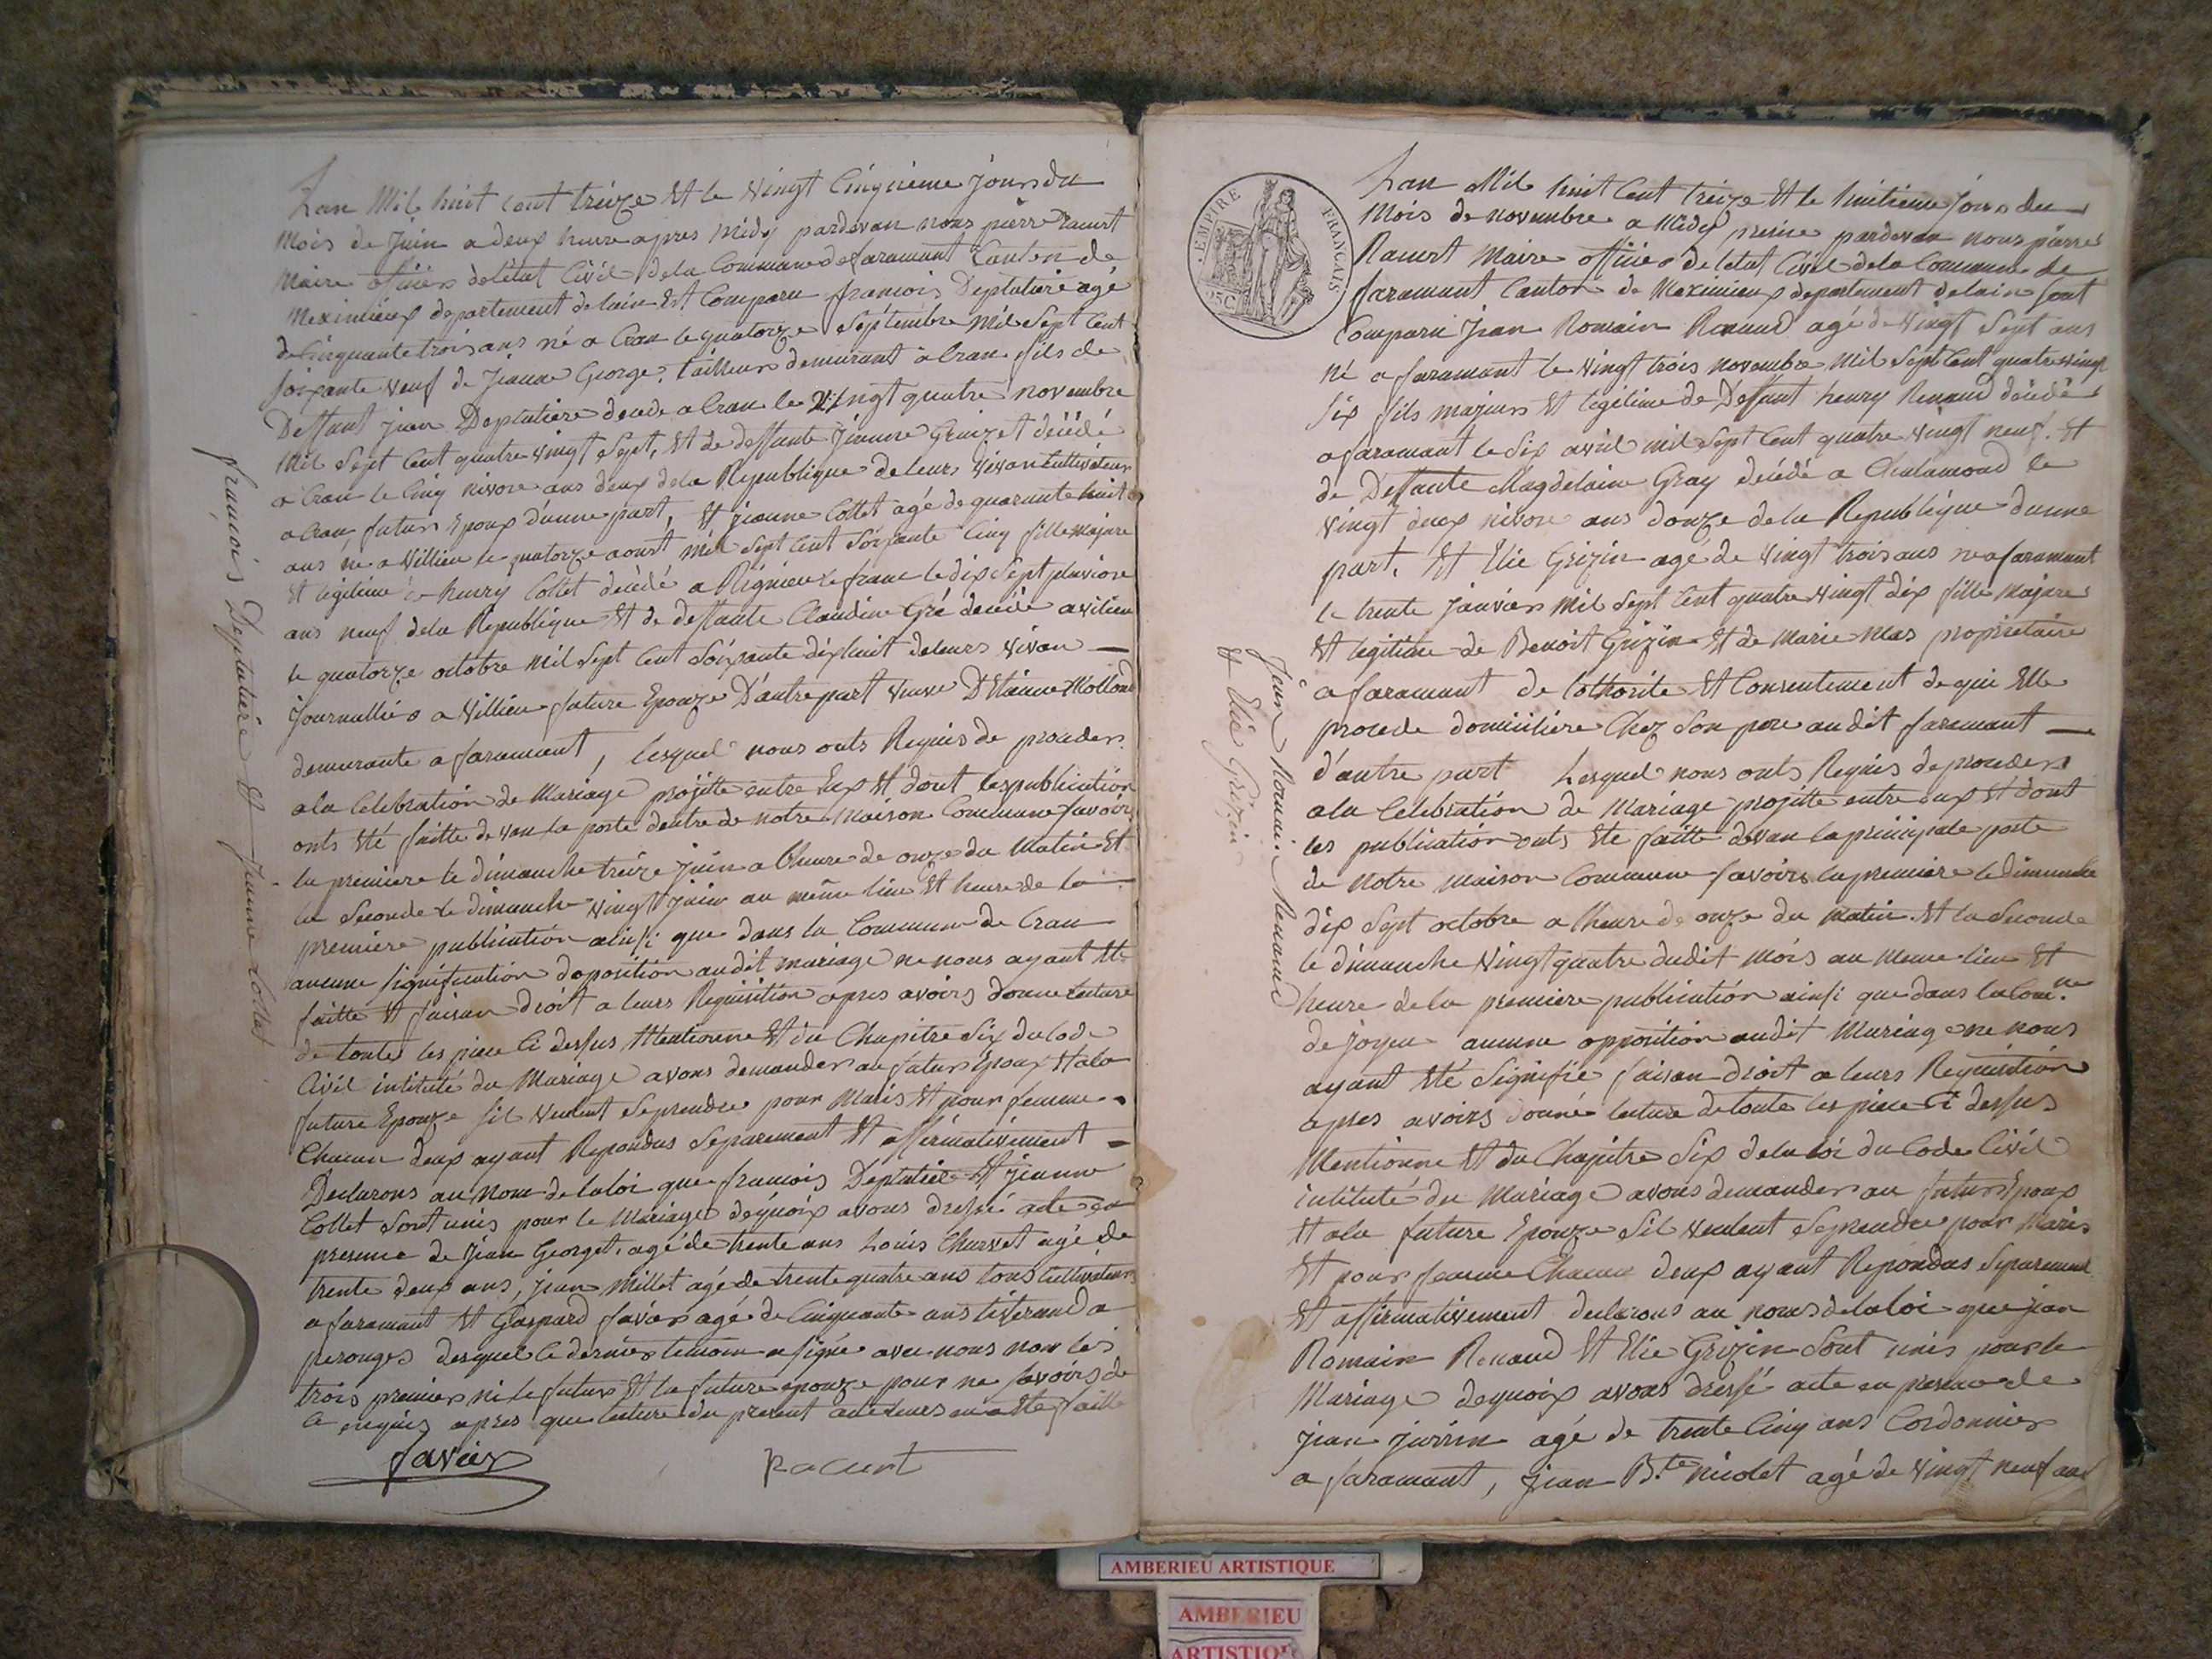 Lan Mil huit cent treize Et le vingt Cinquieme Jours du
Mois de Juin a deux heure apres midy pardevan nous pierre Racurt
Maire officier de létat Civil dela Commune de faramant Canton de
Meximieux departement delain Est Comparu francois Deplatiere agé
de Cinquante trois ans né a Cran le quatorze Septembre Mil Sept Cent
soixante veuf de Jeanne George. tailleur demurant a Cran fils de
Deffunt jean Deplatiere decede a Cran le Vingt quatre novembre
Mil Sept Cent quatre vingt Sept, Et de deffunte Jeanne décédé
a Cran le Cinq nivose ans deux dela Republique de leurs vivan Cultivateur
a Cran futur Epoux d'une part, Et jeanne Collet agé de quarante huit
ans né a Villieu le quatorze aoust Mil Sept Cent Soixante Cinq fille majure
Et légitime de henry Collet décédé a Rignieux le franc le dix Sept pluviose
ans neuf dela Republique Et de deffunte Claudine Gré decede a vilieu
le quatorze octobre Mil Sept Cent Soixante dixhuit deleurs vivan
Journallié a Villieu future Epouze D'autre part veuve D'Etienne Mollond
demurante a faramant, lesquel nous onts Requis de proceder
ala Celebration de Mariage projitte entre Eux Et dont les publication
onts Eté faitte devan la porte dentre de notre Maison Commune Savoirs
la premiere le dimanche treize Juin a lheure de onze du Matin Et
la Seconde le dimanche vingt Juin au même lieu Et heure de la
premiere publication ainsi que dans la Commune de Cran
aucune signification doposition audit mariage ne nous ayant Ete
faitte Et faisan droit a leurs Requisition apres avoirs donné lecture
de toutes les piece Ci dessus Mentionne Et du Chapitre Six du Code
Civil intitulé du Mariage avons demander au futur Epoux Et ala
future Epouze sil veulent Seprendre pour Maris Et pour femme
Chacun deux ayant Repondus Separement Et affirmativement
Declarons au Nom dela loi que francois Deplatiere Et Jeanne
Collet Sont unis pour le Mariage dequoix avons dressé acte en
presence de Jean Georget. agé de trente ans Louis Charvet agé de
trente deux ans, jean Millet agé de trente quatre ans tous Cultivateurs
a faramant Et Gaspard favier agé de Cinquante ans tisserand a
perouges desquel le dernier temoin a signé avec nous non les
trois premier ni le futur Et la future epouze pour ne savoirs de
Ce enquis apres que lecture du present aux leurs en a Ete faitte
favier
Racurt
francois Deplatiere Et Jeanne Collet
EMPIRE FRANÇAIS
25 C
Lan Mil huit Cent treize Et le huitieme Jours du
Mois de novembre a Midy preise pardevan nous pierre
Racurt Maire officier de létat Civil dela Commune de
faramant Canton de Meximieux departement delain sont
Comparu Jean Romain Renaud agé de vingt Sept ans
né a faramant le vingt trois novembre Mil Sept Cent quatre vingt
Six fils majeur Et legitime de Deffunt henry Renaud décédé
a faramant le Six avril mil Sept Cent quatre vingt neuf. Et
de Deffunte Magdelaine Gray décédé a Chalamond le
vingt deux nivose ans douze dela Republique dune
part. Et Elie Grizin agé de vingt trois ans né a faramant
le trente janvier Mil Sept Cent quatre vingt dix fille Majure
Et legitime de Benoit Grizin Et de Marie Mas proprietaire
a faramant de lothorite Et Consentement de qui Elle
procede domiciliere Chez Son pere audit faramant
d'autre part Lesquel nous onts Requis de proceder
ala Celebration de Mariage projitte entre eux Et dont
les publication onts Ete faitte devan la principale porte
de Notre Maison Commune Savoirs la premiere le dimanche
dix Sept octobre a lheure de onze du Matin. Et la Seconde
le dimanche vingt quatre dudit Mois au Meme lieu Et
heure dela premiere publication ainsi que dans la Comne
de Joyeu aucune opposition audit Mariage ne nous
ayant Eté Signifié faisan droit a leurs Requisition
apres avoirs donné lecture detoute les piece Ci dessus
Mentionne Et du Chapitre Six dela loi du Code Civil
intitulé du Mariage avons demander au futur Epoux
Et ala future Epouze Sil veulent Seprendre pour Maris
Et pour femme Chacun deux ayant Repondus Separement
Et affirmativement declarons au noms dela loi que jean
Romain Renaud Et Elie Grizin Sont unis pour le
Mariage dequoix avons dressé acte en presence de
jean agé de trente Cinq ans Cordonnier
a faramant, jean Bte nicolet agé de vingt neuf ans
Jean Romain Renaud
Et Elie Grizin
AMBERIEU ARTISTIQUE
AMBERIEU
ARTISTIQ